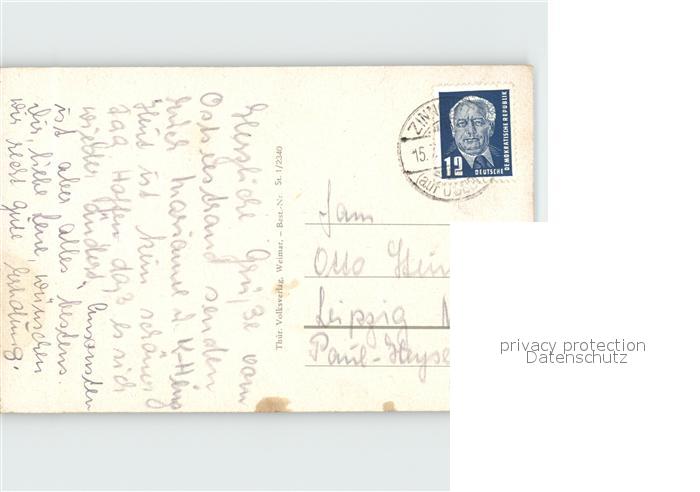 Herzliche Grüße vom
Ostseestrand senden
Euch Marianne u. K-Heinz
Heut ist kein schöner
Tag. Hoffen daß es sich
wieder ändert. Ansonsten
ist aber alles bestens.
Dir, liebe Lene, wünschen
wir recht gute Erholung.
Thür. Volksverlag, Weimar. – Best.-Nr. St. 1/2340
Fam
Otto
Leipzig N
Paul-Heyse
ZINN
15.
(auf USED
12
DEUTSCHE
DEMOKRATISCHE REPUBLIK
privacy protection
Datenschutz